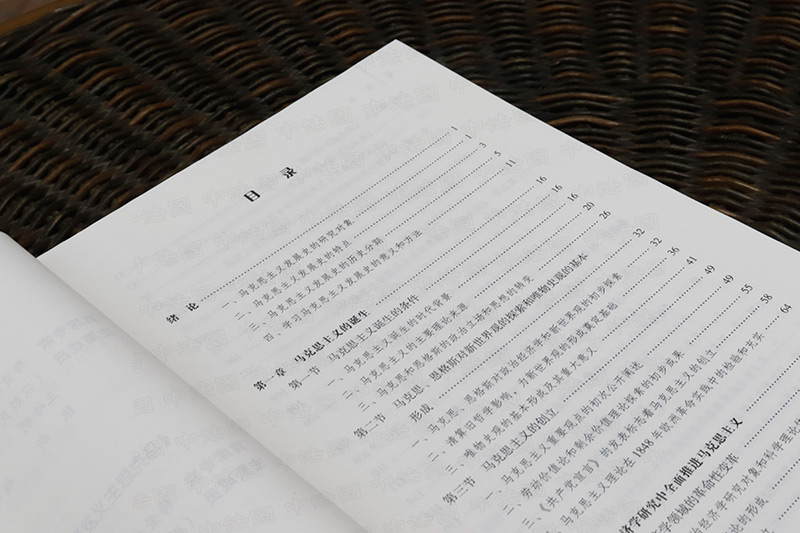 目 录
绪 论 1
一、马克思主义发展史的研究对象 1
二、马克思主义发展史的特点 3
三、马克思主义发展史的历史分期 5
四、学习马克思主义发展史的意义和方法 11
第一章 马克思主义的诞生 16
第一节 马克思主义诞生的条件 16
一、马克思主义诞生的时代背景 16
二、马克思主义的主要理论来源 20
三、马克思和恩格斯的政治立场和思想的转变 26
第二节 马克思、恩格斯对新世界观的探索和唯物史观的基本
形成 32
一、马克思、恩格斯对政治经济学和新世界观的初步探索 32
二、清算旧哲学影响，为新世界观的形成奠定基础 36
三、唯物史观的基本形成及其重大意义 41
第三节 马克思主义的创立 49
一、马克思主义重要观点的初次公开阐述 49
二、劳动价值论和剩余价值理论探索的初步成果 55
三、《共产党宣言》的发表标志着马克思主义的创立 58
马克思主义理论在 1848 年欧洲革命实践中的检验和充实 64
济学研究中全面推进马克思主义
学领域的革命性变革
治经济学研究对象和科学理论体
论的形成